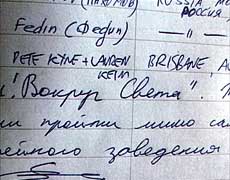 RUSSIA
РОССИЯ,
Fedin (Федин) —"—
PETE KYNE + LAUREN KEIM BRISBANE, A
"Вокруг Света".
ии пройти мимо
ейного заведения